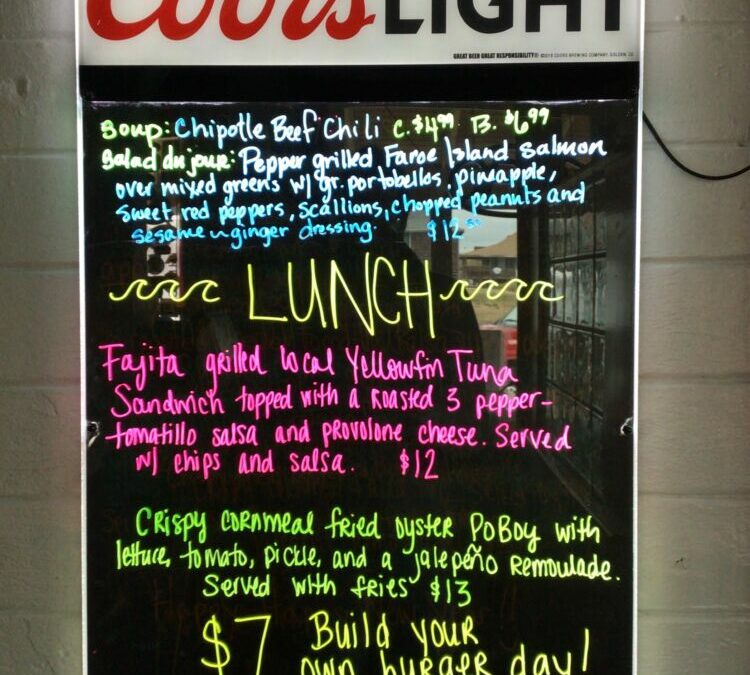 Coors LIGHT
GREAT BEER GREAT RESPONSIBILITY®
COORS BREWING COMPANY, GOLDEN, CO
Soup: Chipotle Beef Chili C. $4.99 B. $6.99
Salad du jour: Pepper grilled Faroe Island Salmon
over mixed greens w/ gr. portobellos, pineapple,
sweet red peppers, scallions, chopped peanuts and
sesame ginger dressing. $12
LUNCH
Fajita grilled local Yellowfin Tuna
Sandwich topped with a roasted 3 pepper-
tomatillo salsa and provolone cheese. Served
w/ chips and salsa. $12
Crispy cornmeal fried oyster PoBoy with
lettuce, tomato, pickle, and a jalepeño remoulade.
Served with fries $13
$7 Build your
own burger day!